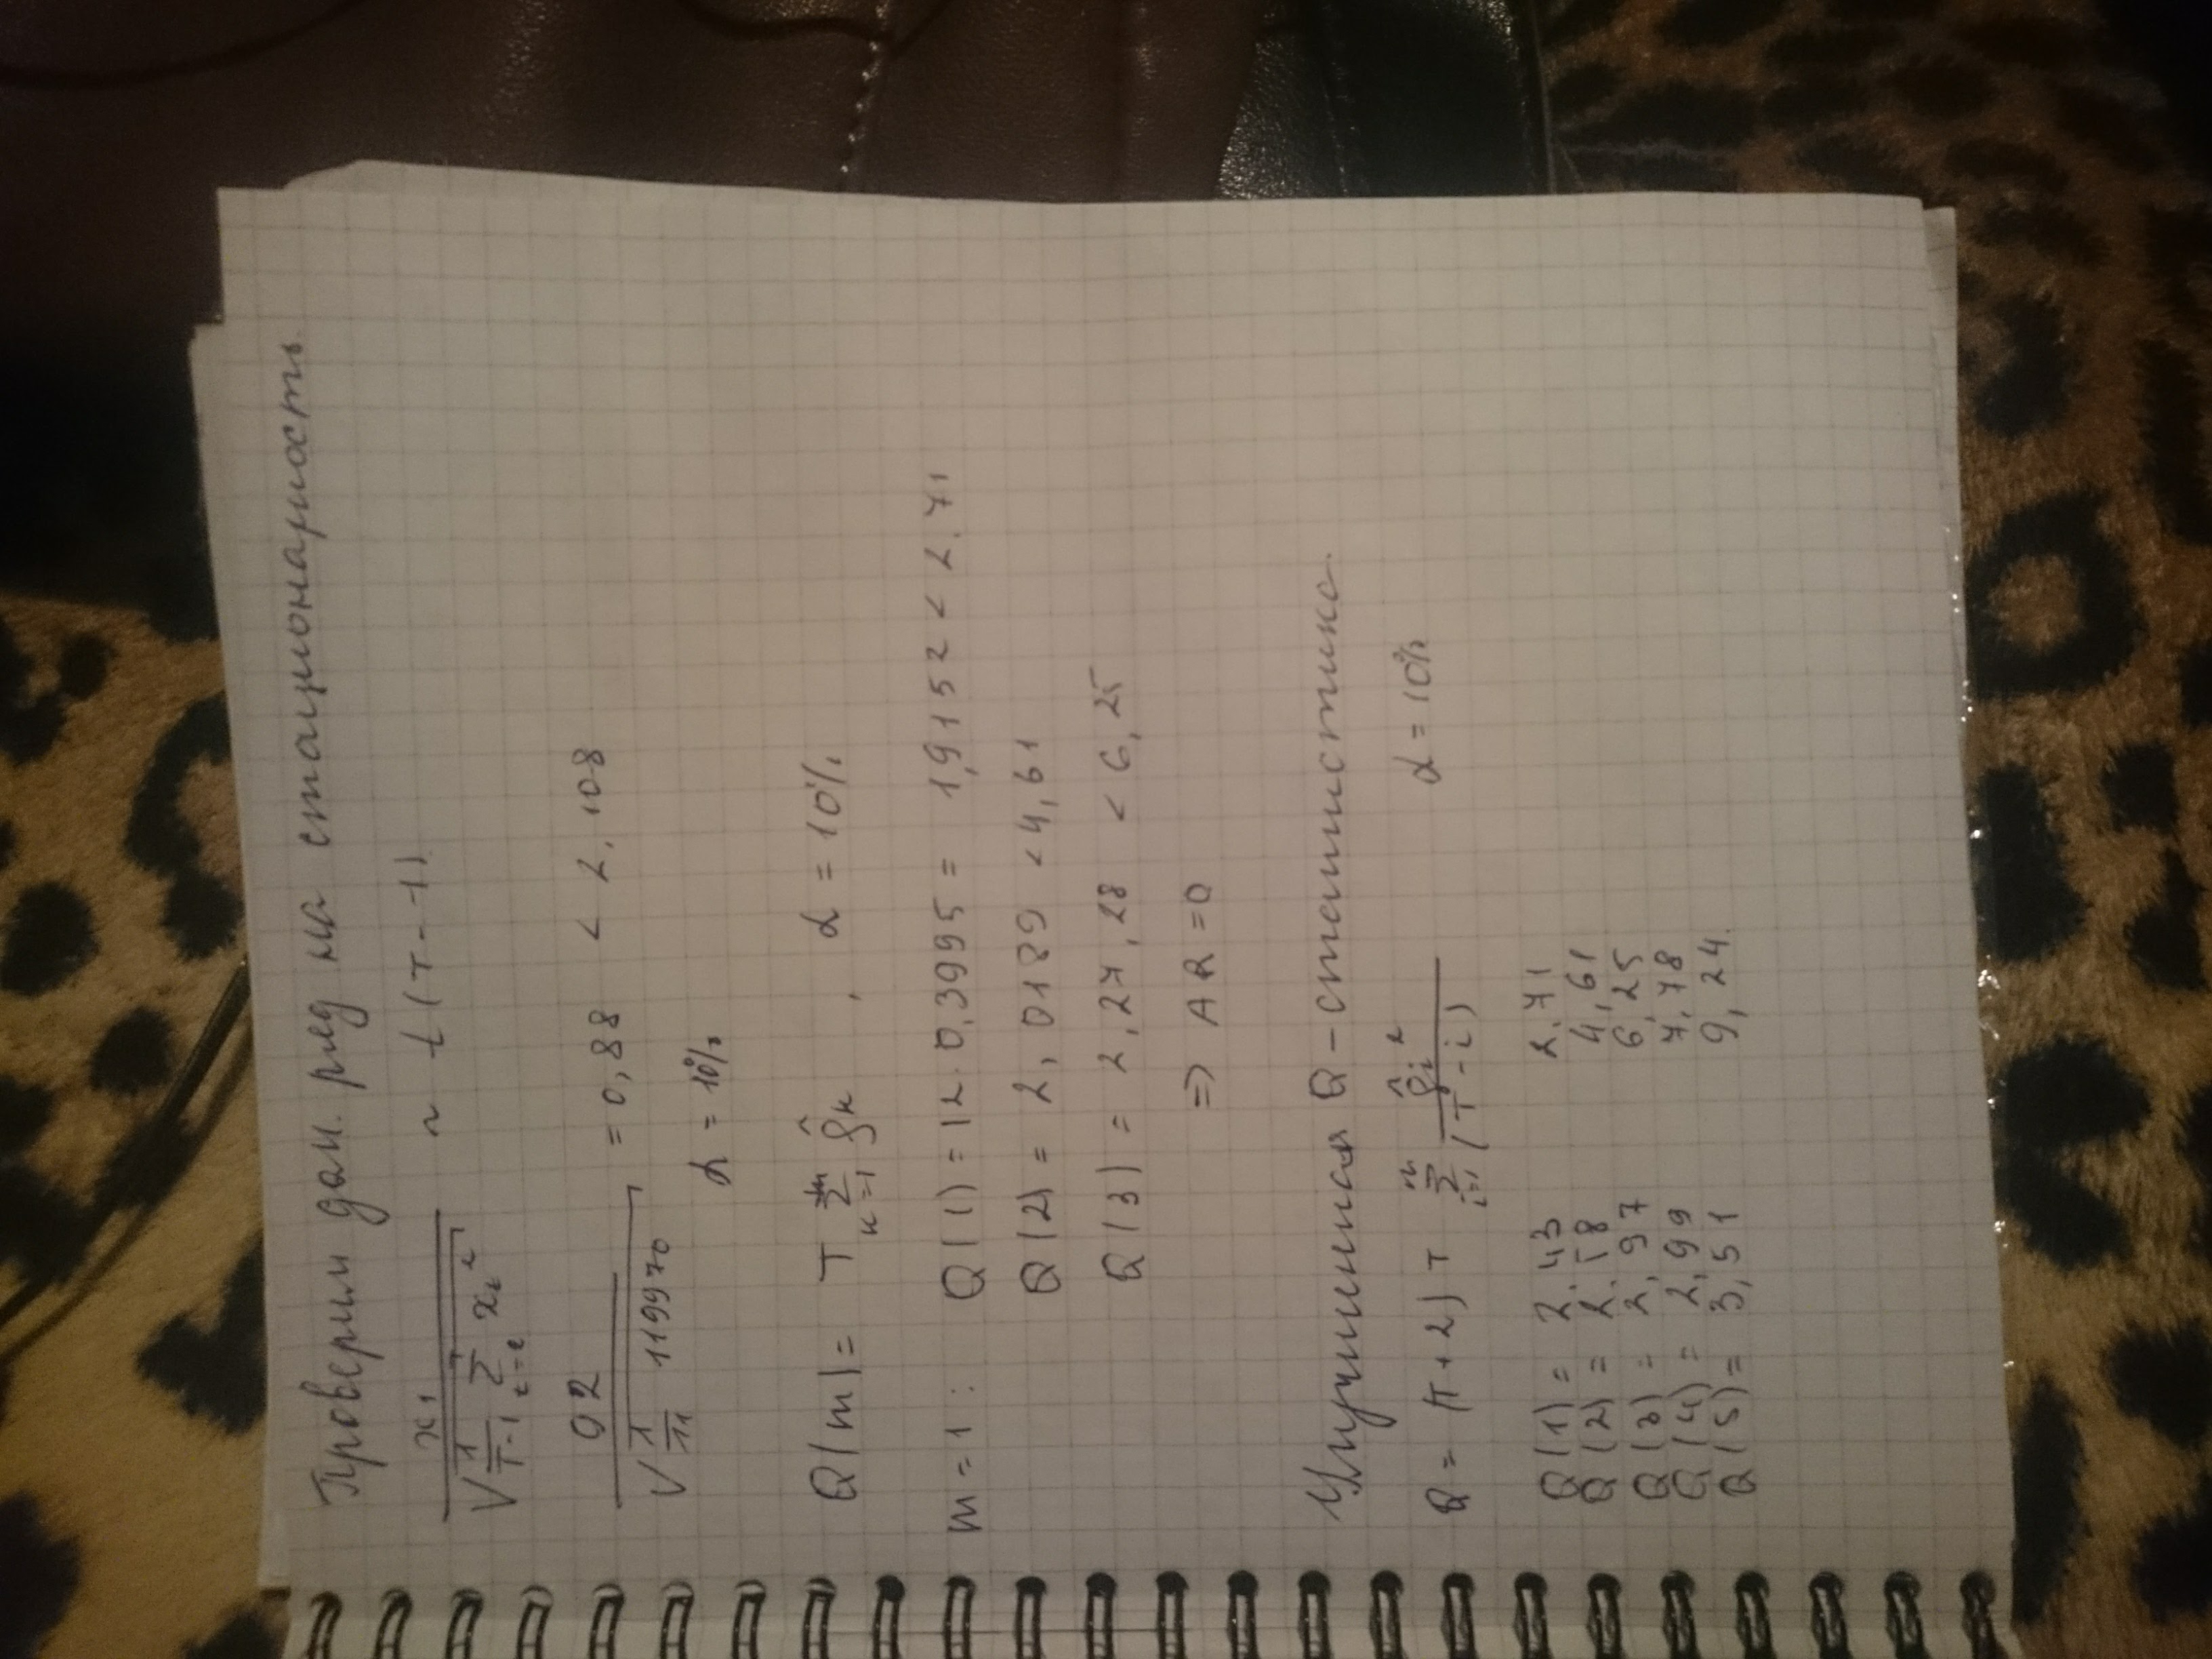 Проверим дан. ряд на стационарность
x₁ / √(1/(T-1) Σ t=2 x_t²) ~ t(T-1)
92 / √(1/11 119970) = 0,88 < 2,108
α = 10%
Q(m) = T Σ k=1 ρ̂k , α = 10%
m=1: Q(1) = 12·0,3995 = 1,9152 < 2.71
Q(2) = 2,0189 < 4,61
Q(3) = 2,27,28 < 6,25
=> AR=0
Улучшенная Q-статистика.
Q = (T+2)T Σ i=1 m ρ̂i² / (T-i) α = 10%
Q(1) = 2.43 2.71
Q(2) = 2.58 4,61
Q(3) = 2,97 6,25
Q(4) = 2,99 7,78
Q(5) = 3,51 9,24.